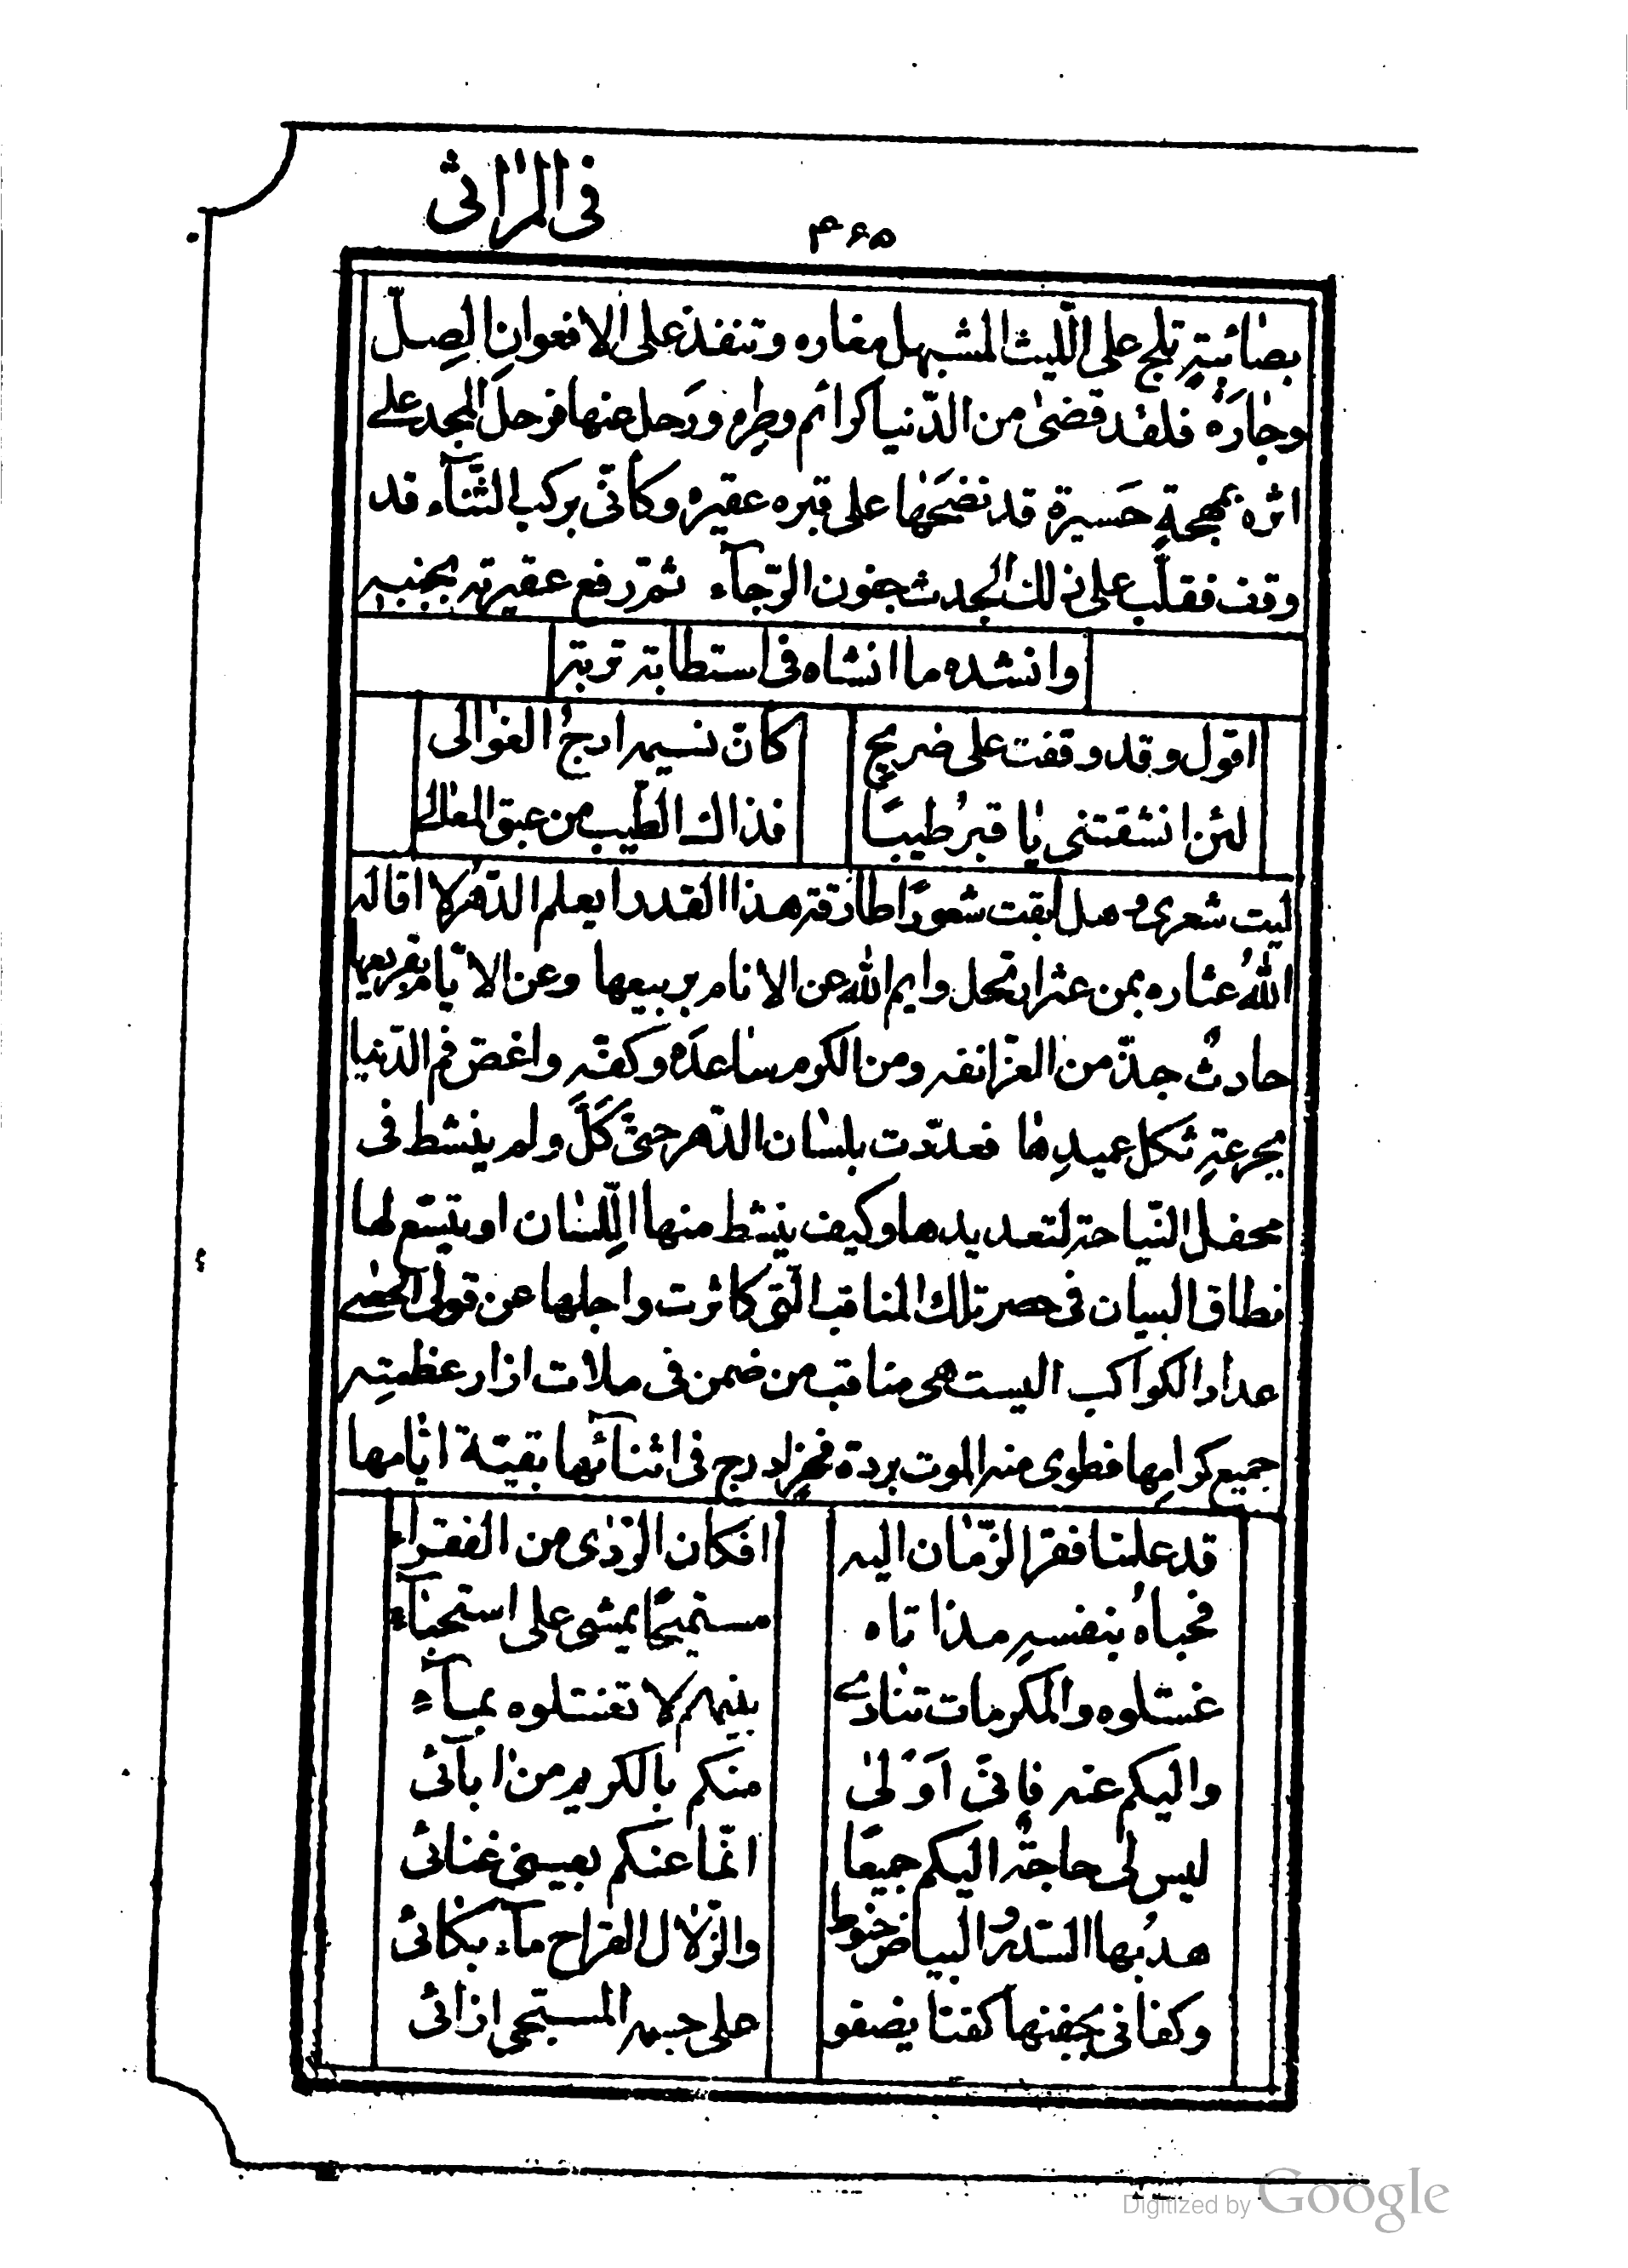 فى المراثى
۴۶۵
بصائبةٍ تلج على اللّيث المشبهل مغاره وتنفذ على الافعوانِ الصِلّ
وجارَهُ فلقد قضىٰ من الدّنيا كرائم وطرِه ورَحل عنها فرحلَ المجد على
اثره بمهجةٍ حَسيرة قد نضحَها على قبره عقيره وكأنّى بركب الثّنآء قد
وقف فقلّب على ذلك الجدث جفون الرّجآء ثمّ رفع عقيرته بجنبه
وانشده ما انشاه فى استطابة تربته
اقول وقد وقفت على ضريحٍ كانّ نسيمه ارجُ الغوالى
لئن انشقتنى يا قبرُ طيبًا فذاك الطّيب من عبق المعالى
ليت شعرى وهل ابقت شعورًا طارقة هذا القدر ايعلم الدّهر لا اقاله
اللهُ عثاره بمن عثر ارتحل وايم الله عن الانام بربيعها وعن الايّام بقريعها
حادثٌ جذّ من العزّ انفه ومن الكرم ساعدَه وكفّه واغصّ فم الدّنيا
بجرعةِ ثكل عميدِها فعدّدت بلسان الدّهر حتّى كَلَّ ولم ينشط فى
محفل النّياحة لتعديدها وكيف ينشط منها اللّسان او يتّسع لها
نطاق البيان فى حصر تلك المناقب الّتى كاثرت واجلها عن قولى الحصى
عداد الكواكب اليست هى مناقب من ضمن فى ملاث ازار عظمتِه
جميع كرامِها فطوى منه الموت بردة فخرٍ ادرج فى اثنآئها بقيّة ايّامها
قد علمنا فقر الزّمان اليه افكان الرّدى من الفقرآء
فحباهُ بنفسهِ مذ اتاه مستميحًا يمشى على استحيآء
غسّلوه والمكرمات تنادى بينهم لا تغسّلوه بمآء
واليكم عنه فانّى اَوْلىٰ منكم بالكريم من ابآئى
ليس لى حاجةٌ اليكم جميعًا انّما عنكم بعينى غنائى
هدبُها السّدرُ والبياض حنوط والزّلال القراح مآء بكائى
وكفانى بجفنها كفنًا يضفو على جسمه المسجّى ازائى
Digitized by Google